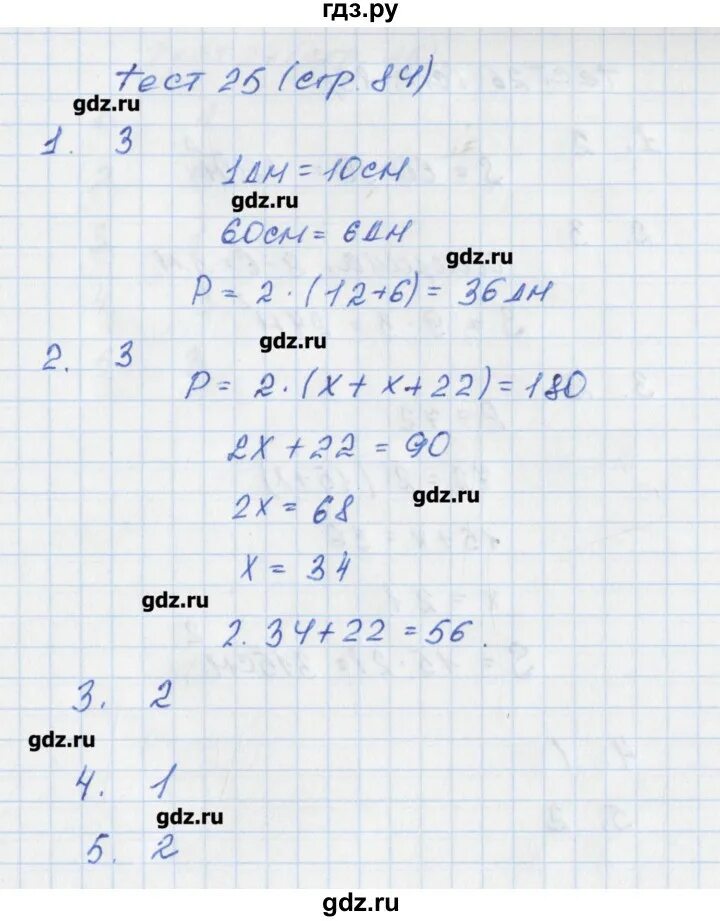 гдз.ру
Тест 25 (стр. 84)
gdz.ru
1. 3
1дм = 10см
gdz.ru
60см = 6дм
gdz.ru
P = 2 · (12+6) = 36дм
gdz.ru
2. 3
P = 2 · (x + x + 22) = 180
2x + 22 = 90
gdz.ru
2x = 68
x = 34
gdz.ru
2. 34 + 22 = 56.
3. 2
gdz.ru
4. 1
gdz.ru
5. 2
gdz.ru